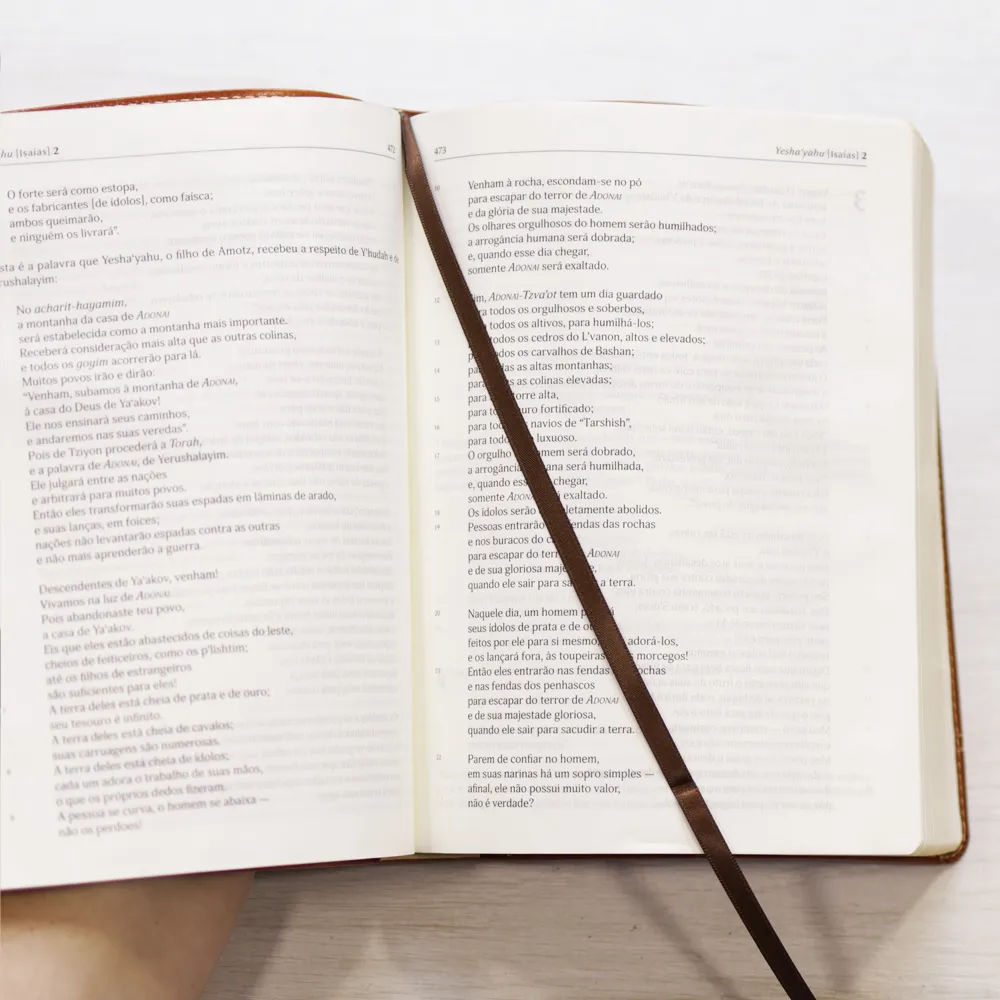 hu [Isaías] 2
472
O forte será como estopa,
e os fabricantes [de ídolos], como faísca;
ambos queimarão,
e ninguém os livrará”.
sta é a palavra que Yesha‘yahu, o filho de Amotz, recebeu a respeito de Y’hudah e de
rushalayim:
No acharit-hayamim,
a montanha da casa de ADONAI
será estabelecida como a montanha mais importante.
Receberá consideração mais alta que as outras colinas,
e todos os goyim acorrerão para lá.
Muitos povos irão e dirão:
“Venham, subamos à montanha de ADONAI,
à casa do Deus de Ya‘akov!
Ele nos ensinará seus caminhos,
e andaremos nas suas veredas”.
Pois de Tziyon procederá a Torah,
e a palavra de ADONAI, de Yerushalayim.
Ele julgará entre as nações
e arbitrará para muitos povos.
Então eles transformarão suas espadas em lâminas de arado,
e suas lanças, em foices;
nações não levantarão espadas contra as outras
e não mais aprenderão a guerra.
Descendentes de Ya‘akov, venham!
Vivamos na luz de ADONAI.
Pois abandonaste teu povo,
a casa de Ya‘akov.
Eis que eles estão abastecidos de coisas do leste,
cheios de feiticeiros, como os p’lishtim;
até os filhos de estrangeiros
são suficientes para eles!
A terra deles está cheia de prata e de ouro;
seu tesouro é infinito.
A terra deles está cheia de cavalos;
suas carruagens são numerosas.
8 A terra deles está cheia de ídolos;
cada um adora o trabalho de suas mãos,
o que os próprios dedos fizeram.
9 A pessoa se curva, o homem se abaixa —
não os perdoes!
473
Yesha‘yahu [Isaías] 2
10 Venham à rocha, escondam-se no pó
para escapar do terror de ADONAI
e da glória de sua majestade.
Os olhares orgulhosos do homem serão humilhados;
a arrogância humana será dobrada;
e, quando esse dia chegar,
somente ADONAI será exaltado.
12 im, ADONAI-Tzva’ot tem um dia guardado
ra todos os orgulhosos e soberbos,
todos os altivos, para humilhá-los;
13 todos os cedros do L’vanon, altos e elevados;
p dos os carvalhos de Bashan;
14 par as as altas montanhas;
para as colinas elevadas;
15 para orre alta,
para to uro fortificado;
16 para to navios de “Tarshish”,
para tod luxuoso.
17 O orgulho mem será dobrado,
a arrogância ana será humilhada,
e, quando ess chegar,
somente ADON exaltado.
18 Os ídolos serão letamente abolidos.
19 Pessoas entrarão endas das rochas
e nos buracos do
para escapar do terr ADONAI
e de sua gloriosa maje
quando ele sair para sa a terra.
20 Naquele dia, um homem p
seus ídolos de prata e de o
feitos por ele para si mesmo, adorá-los,
e os lançará fora, às toupeiras morcegos!
21 Então eles entrarão nas fendas rochas
e nas fendas dos penhascos
para escapar do terror de ADONAI
e de sua majestade gloriosa,
quando ele sair para sacudir a terra.
22 Parem de confiar no homem,
em suas narinas há um sopro simples —
afinal, ele não possui muito valor,
não é verdade?